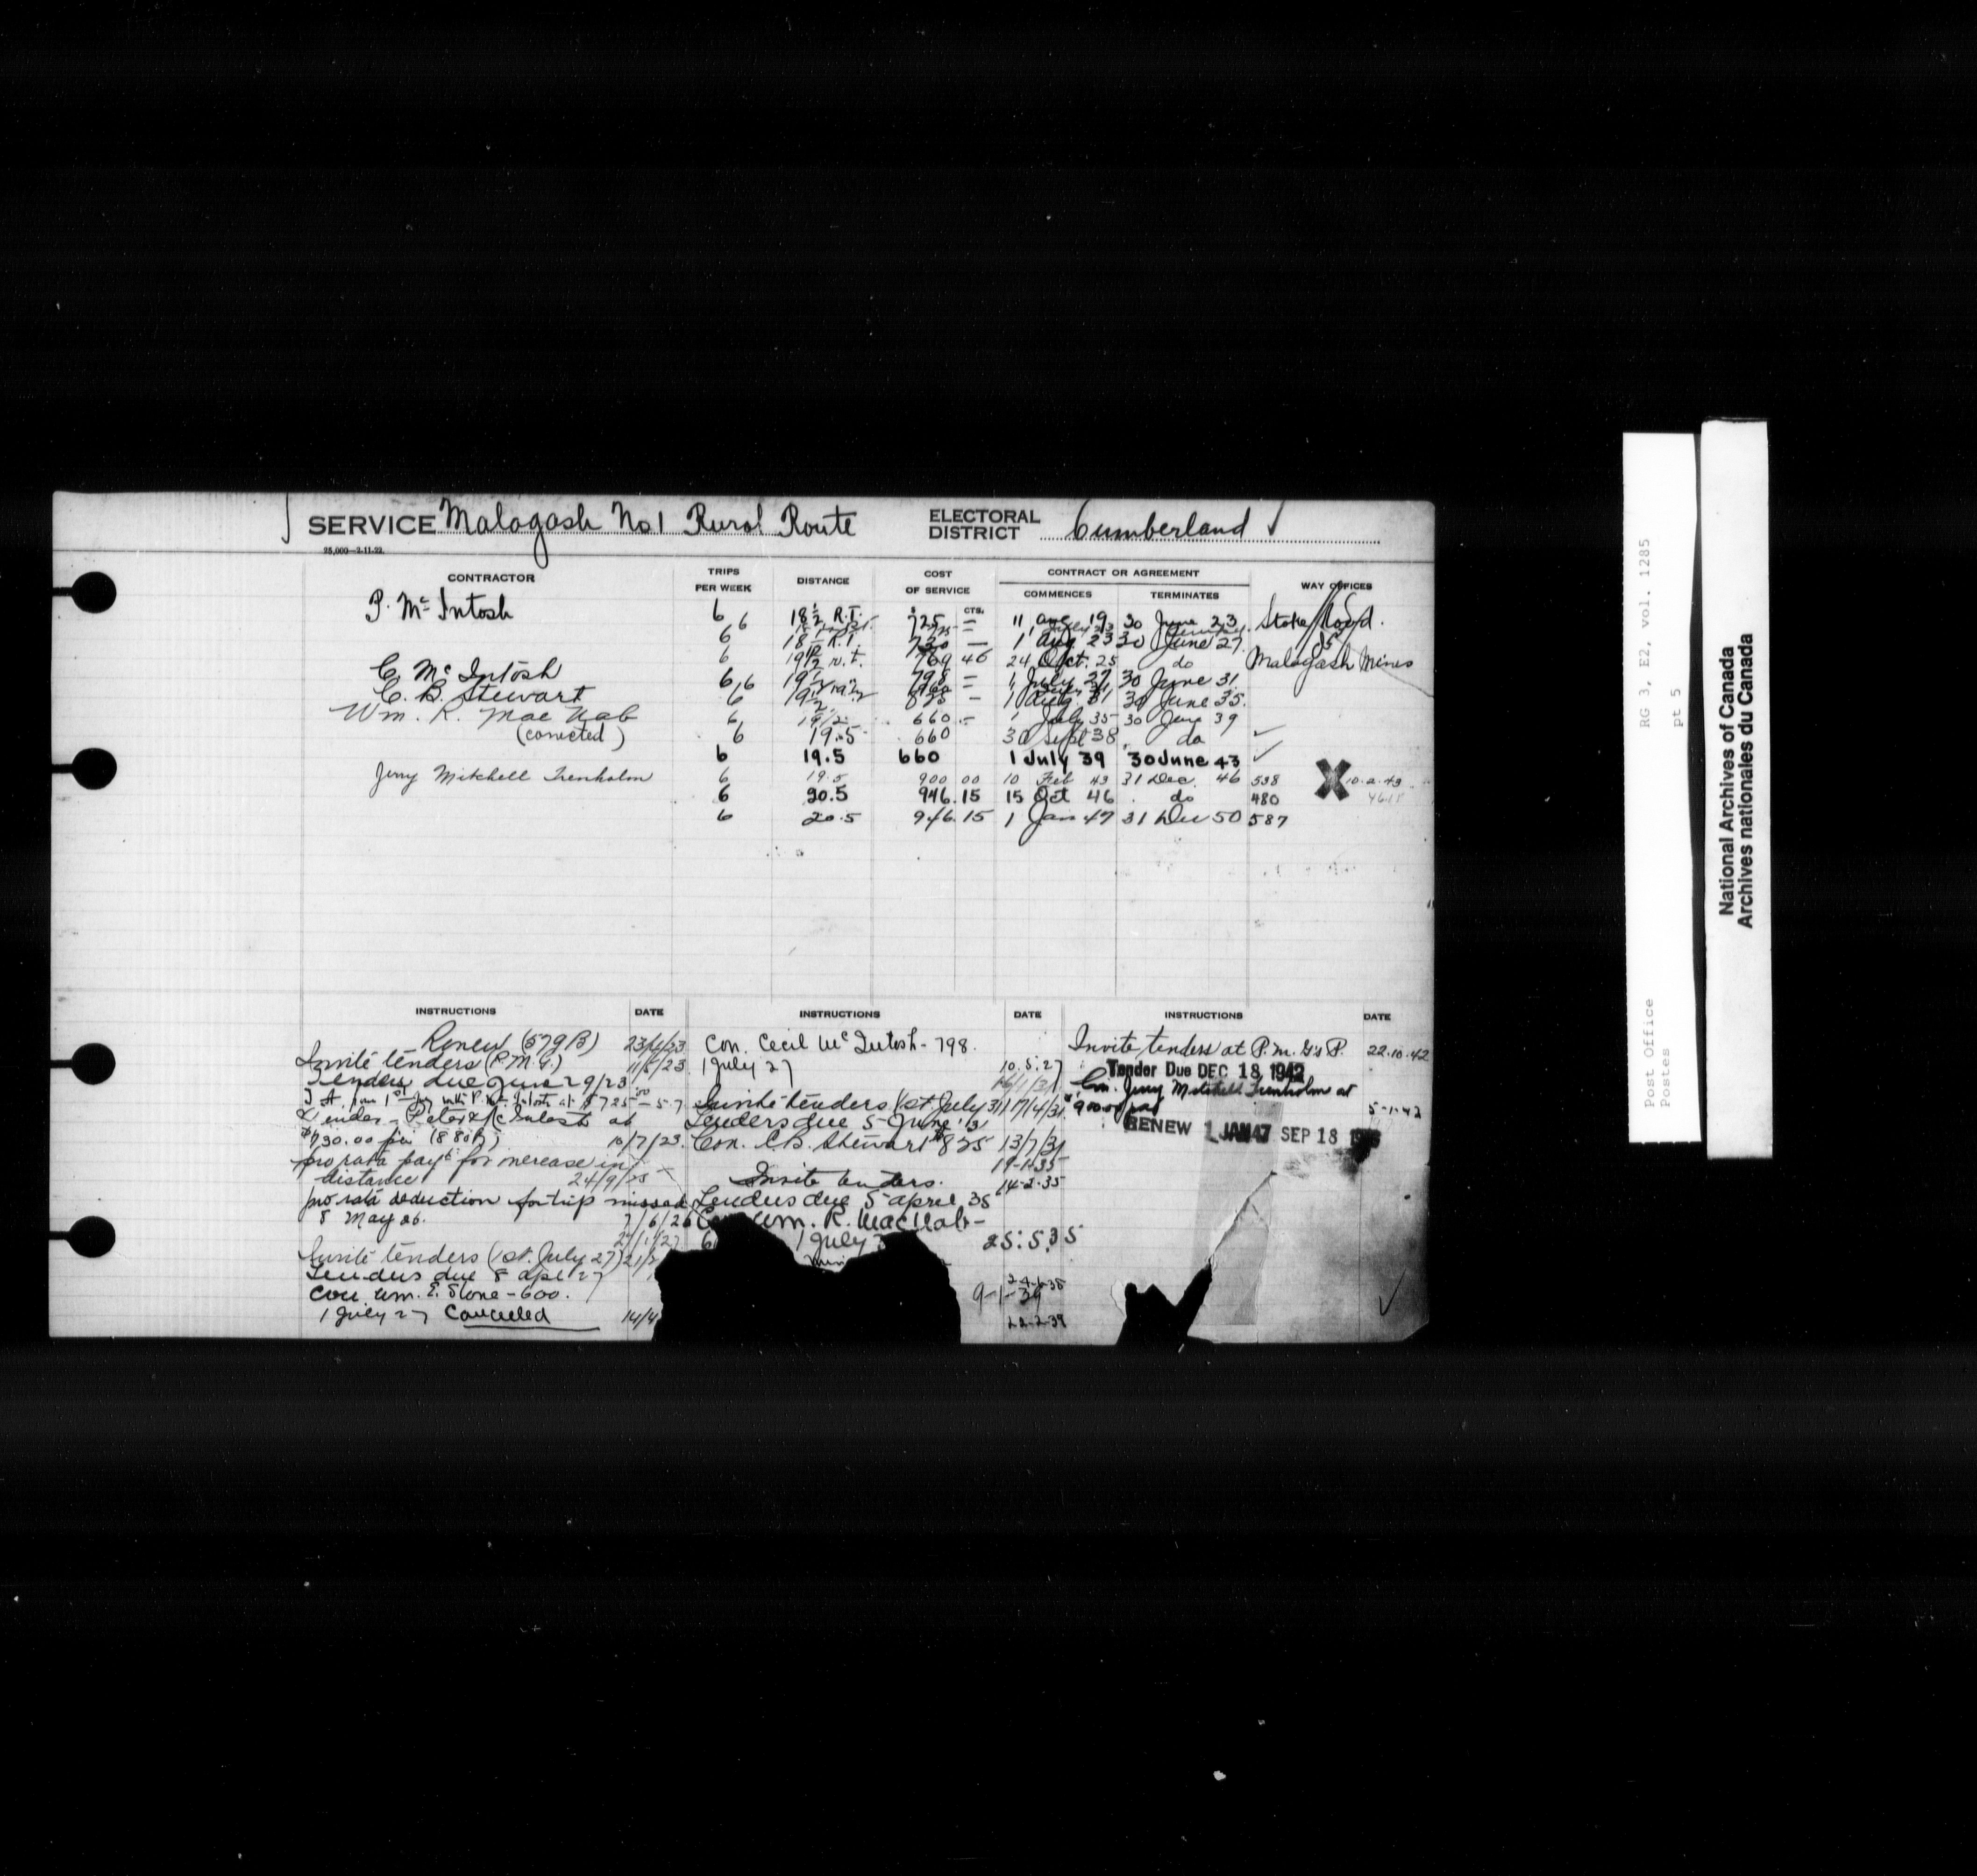 SERVICE Malagash No 1 Rural Route ELECTORAL DISTRICT Cumberland
25,000—2-11-22.
CONTRACTOR TRIPS PER WEEK DISTANCE COST OF SERVICE CONTRACT OR AGREEMENT COMMENCES TERMINATES WAY OFFICES
$ CTS.
P. McIntosh 6 18½ R.T. 725 – 11 Aug 19 30 June 23 Stake Road.
6
6 18½ R.T. 730 — 1 Aug. 23 30 June 27.
6 19½ r.t. 769 46 24 Oct. 25 do Malagash Mines
C. McIntosh 6 19½ 798 = 1 July 27 30 June 31.
C. B. Stewart 6 19½ 825 – 1 Aug. 31 30 June 35.
Wm. R. MacNab 6 19½ 660 – 1 July 35 30 June 39
(corrected) 6 19.5 660 30 Sept 38 do
6 19.5 660 1 July 39 30 June 43
Jerry Mitchell Trenholm 6 19.5 900 00 10 Feb 43 31 Dec. 46 538 X 10-2-43
6 20.5 946.15 15 Oct 46 do 480
6 20.5 946.15 1 Jan 47 31 Dec 50 587
INSTRUCTIONS DATE
Renew (579B)
Invite tenders (P.M.G.) 11/5/23
Tenders due June 29/23
Peter McIntosh at
$730.00 10/7/23.
pro rata payt for increase in
distance 24/9/25
pro rata deduction for trip missed
8 May 26. 7/6/26
27/1/27
Invite tenders (1st. July 27)
Tenders due 8 Apl 27
Con Wm. E. Stone - 600.
1 July 27 Cancelled 14/4
INSTRUCTIONS DATE
Con. Cecil McIntosh - 798.
1 July 27 10.5.27
Invite tenders (1st July 31) 17/4/31
Tenders due 5 June '31
Con. C.B. Stewart $825 13/7/31
19-1-35
Invite tenders. 14-2-35
Tenders due 5 April 35
Wm. R. MacNab -
1 July 25.5.35
9-1-39
22-2-39
INSTRUCTIONS DATE
Invite tenders at P.M.G's P. 22.10.42
Tender Due DEC 18 1942
Con. Jerry Mitchell Trenholm at
$900.00
RENEW 1 JAN 47 SEP 18
Post Office RG 3, E2, vol. 1285
Postes pt 5
National Archives of Canada
Archives nationales du Canada